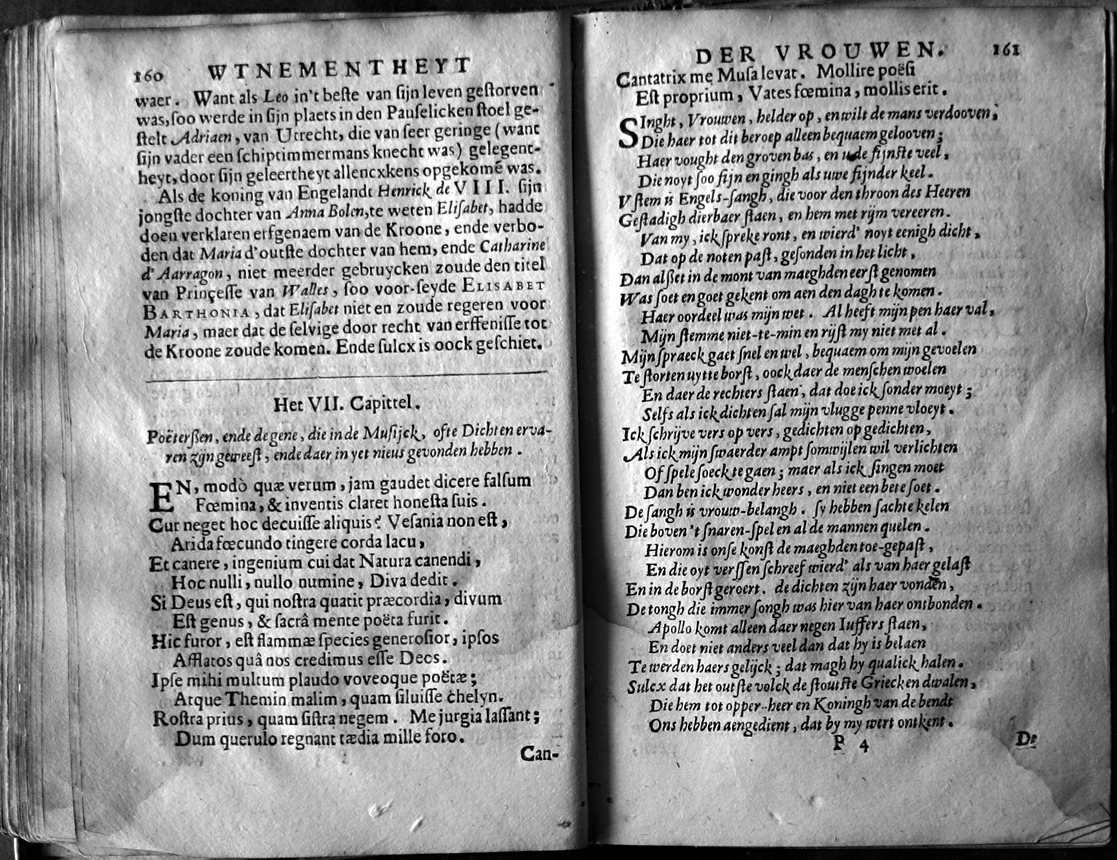 160 WTNEMENTHEYT
waer. Want als Leo in't beste van sijn leven gestorven
was, soo werde in sijn plaets in den Pauselicken stoel ge-
stelt Adriaen, van Utrecht, die van seer geringe (want
sijn vader een schiptimmermans knecht was) gelegent-
heyt, door sijn geleertheyt allencxkens opgekomē was.
Als de koning van Engelandt Henrick de VIII. sijn
jongste dochter van Anna Bolen, te weten Elisabet, hadde
doen verklaren erfgenaem van de Kroone, ende verbo-
den dat Maria d'outste dochter van hem, ende Catharine
d'Aarragon, niet meerder gebruycken zoude den titel
van Prinçesse van Walles, soo voor-seyde ELISABET
BARTHONIA, dat Elisabet niet en zoude regeren voor
Maria, maer dat de selvige door recht van erffenisse tot
de Kroone zoude komen. Ende sulcx is oock geschiet.
Het VII. Capittel.
Poëterßen, ende de gene, die in de Musijck, ofte Dichten erva-
ren zijn geweest, ende daer in yet nieus gevonden hebben.
EN, modò quæ verum, jam gaudet dicere falsum
Fœmina, & inventis claret honesta suis.
Cur neget hoc decuisse aliquis? Vesania non est,
Arida fœcundo tingere corda lacu,
Et canere, ingenium cui dat Natura canendi,
Hoc nulli, nullo numine, Diva dedit.
Si Deus est, qui nostra quatit præcordia, divum
Est genus, & sacrâ mente poëta furit.
Hic furor, est flammæ species generosior, ipsos
Afflatos quâ nos credimus esse Deos.
Ipse mihi multum plaudo voveoque poëtæ;
Atque Themin malim, quam siluisse chelyn.
Rostra prius, quam sistra negem. Me jurgia lassant;
Dum querulo regnant tædia mille foro.
Can-
DER VROUWEN. 161
Cantatrix me Musa levat. Mollire poësi
Est proprium, Vates fœmina, mollis erit.
SInght, Vrouwen, helder op, en wilt de mans verdooven;
Die haer tot dit beroep alleen bequaem gelooven;
Haer vought den groven bas, en u de fijnste veel,
Die noyt soo fijn en gingh als uwe fijnder keel.
Vstem is Engels-sangh, die voor den throon des Heeren
Gestadigh dierbaer staen, en hem met rijm vereeren.
Van my, ick spreke ront, en wierd' noyt eenigh dicht,
Dat op de noten past, gesonden in het licht,
Dan alßet in de mont van maeghden eerst genomen
Was soet en goet gekent om aen den dagh te komen.
Haer oordeel was mijn wet. Al heeft mijn pen haer val,
Mijn stemme niet-te-min en rijst my niet met al.
Mijn spraeck gaet snel en wel, bequaem om mijn gevoelen
Te storten uytte borst, oock daer de menschen woelen
En daer de rechters staen, dat doe ick sonder moeyt;
Selfs als ick dichten sal mijn vlugge penne vloeyt.
Ick schrijve vers op vers, gedichten op gedichten,
Als ick mijn swaerder ampt somwijlen wil verlichten
Of spele soeck te gaen; maer als ick singen moet
Dan ben ick wonder heers, en niet een bete soet.
De sangh is vrouw-belangh. sy hebben sachte kelen
Die boven 't snaren-spel en al de mannen quelen.
Hierom is onse konst de maeghden toe-gepast,
En die oyt verssen schreef wierd' als van haer gelast
En in de borst geroert. de dichten zijn haer vonden,
De tongh die immer songh was hier van haer ontbonden.
Apollo komt alleen daer negen Iuffers staen,
En doet niet anders veel dan dat hy is belaen
Te werden haers gelijck; dat magh hy qualick halen.
Sulcx dat het outste volck de stoutste Griecken dwalen,
Die hem tot opper-heer en Koningh van de bendt
Ons hebben aengedient, dat by my wert ontkent.
P 4 De